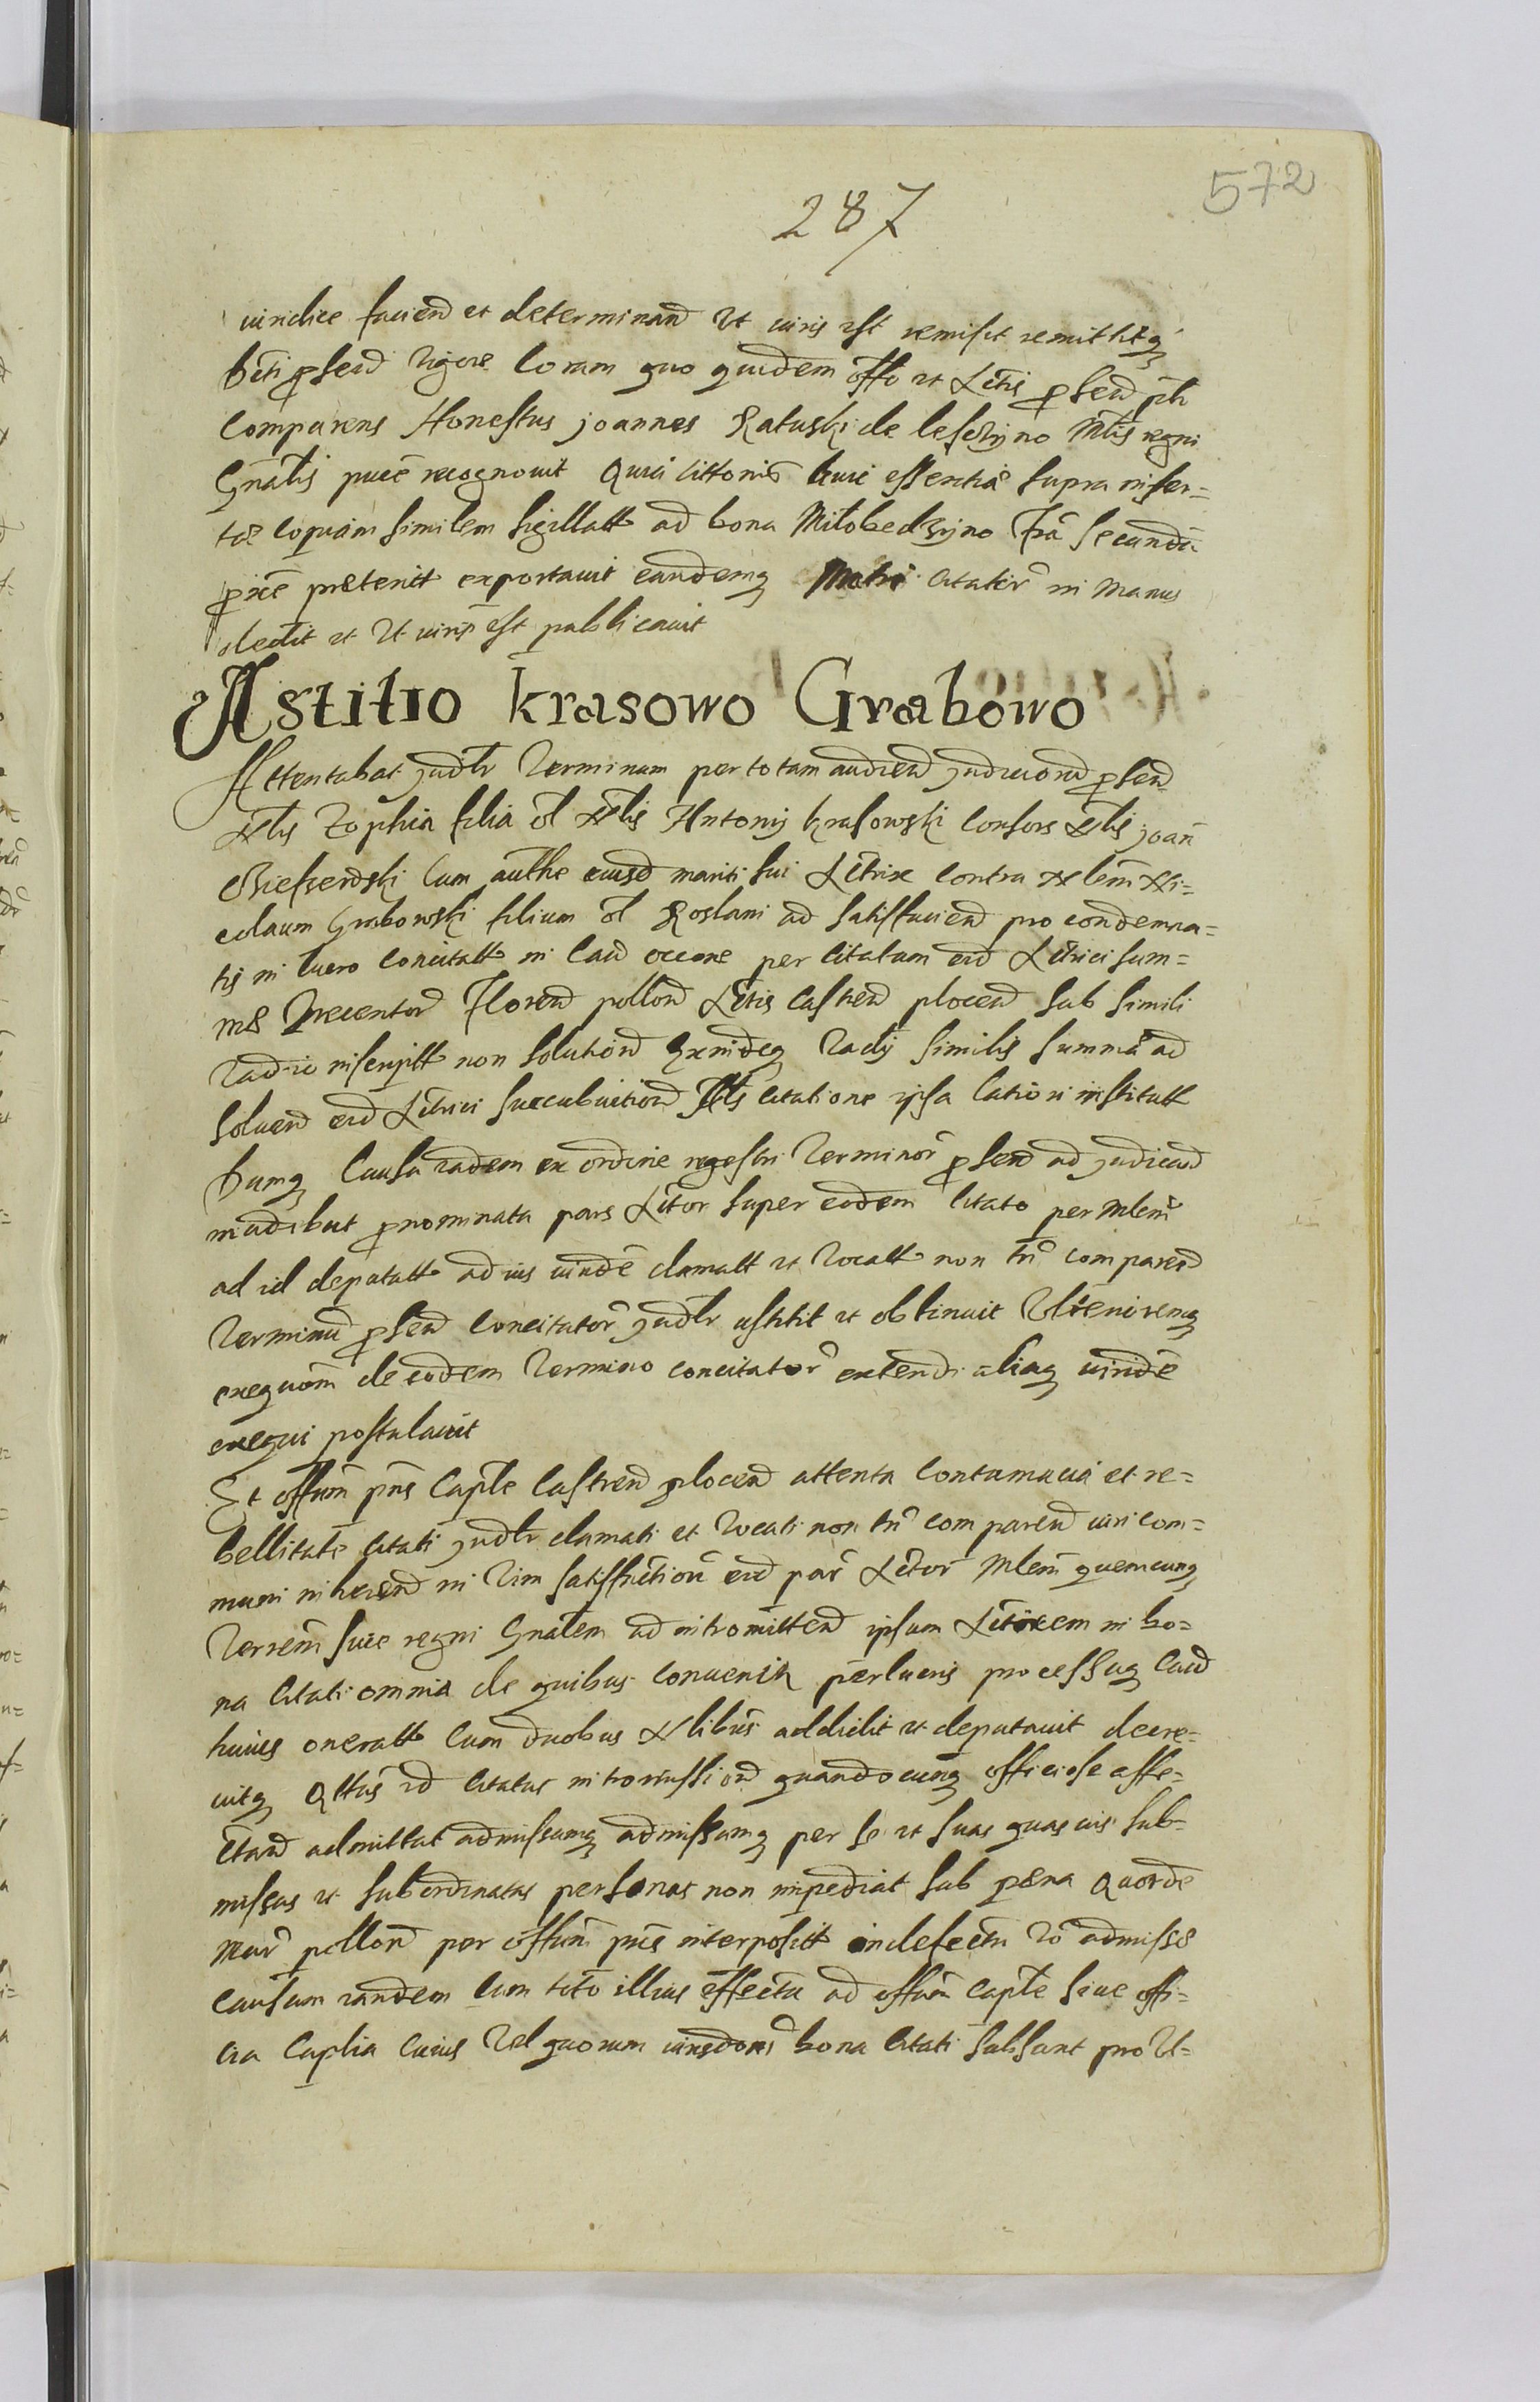 572
287
iuridice faciend et determinand Ut iuris est remisit remittitq
pnti psend vigore Coram quo quidem offo et Actis psend pls
Comparens Honestus Joannes Ratuski de leszczyno Mtlis regni
Gnalis recognovit Quia cittonis huic essentiae supra inser=
tae copiam similem sigillatt ad bona Milobedzyno Fria secunda
pxie preterit exportavit eandemq citator in manus
dedit et Ut iuris est publicavit
Astitio krasowo Grabowo
Attentabat Judlr Terminum per totam audiend Judiciord psend
Nlis Zophia filia ol Nlis Antonij krasowski Consors Nlis Joan
Cum authe eiusd mariti sui Actrix Contra Nlem Ni=
colaum Grabowski filium ol Roslani ad satisfaciend pro condemna=
tis in lucro Concitatt in Caud occone per citatum eid Actrici sum=
mae Trecentor Florend pollond Actis Castrend plocend sub simili
vadio inscriptt non solutiond Exindeq vadij similis summa ad
solvend eid Actrici succubuitiond citatione ipsa latiori institutt
Dumq Causa eadem ex ordine regestri Terminor psend ad judicand
incidebat pnominata pars Actor super eodem Citato per Mlem
ad id deputatt ad ius iuride clamatt et vocatt non tn comparend
Terminu psend Concitator Judlr astitit et obtinuit Ulterioremq
exequom de eodem Termino concitator extendi aliaq iuride
exequi postulavit
Et offum pns Caple Castrend plocend attenta Contumacia et re=
bellitate Citati Judlr clamati et vocati non tn comparend iuri com=
muni inherend in Vim satisfactioni eid par Actor Mlem quemcunq
Terrem sive regni Gnalem ad intromittend ipsam Actricem in bo=
na Citati omnia de quibus Convenit perlucris processuq Caud
huius oneratt Cum duobus Nlibus addidit et deputavit decre=
vitq Qttus id Citatus intromissiond quandocunq officiose affe=
ctand admittat admissamq admissamq per se et suas quasvis sub=
missas et subordinatas personas non impediat sub paena Quorde
Mar pollond per offum pns interpositt in defectu vo admissae
causam eandem Cum toto illius effectu ad offum Caple sive offi=
cia Caplia Cuius Vel quorum iurisdoni bona Citati subsunt pro Ul=